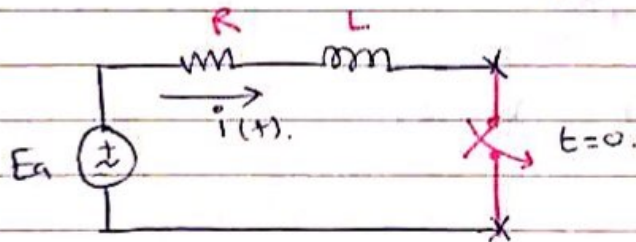 R L
i(t).
Ea
t=0.